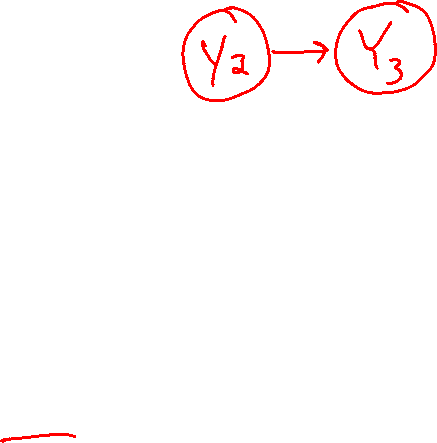 Y₂ → Y₃